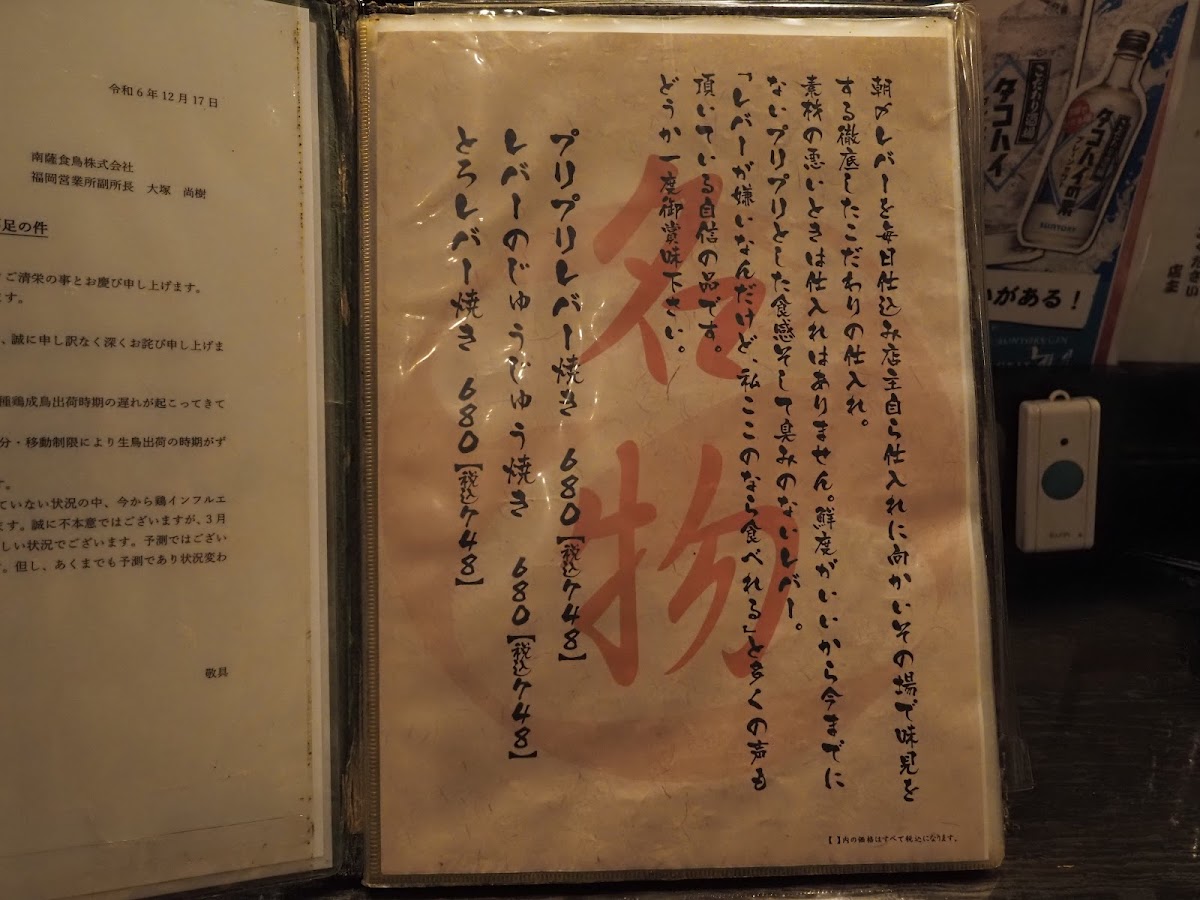 令和6年12月17日
南薩食鳥株式会社
福岡営業所副所長 大塚 尚樹
足の件
ご清栄の事とお慶び申し上げます。
ます。
、誠に申し訳なく深くお詫び申し上げま
種鶏成鳥出荷時期の遅れが起こってきて
分・移動制限により生鳥出荷の時期がず
す。
ていない状況の中、今から鶏インフルエ
ます。誠に不本意ではございますが、3月
しい状況でございます。予測ではござい
。但し、あくまでも予測であり状況変わ
敬具
名物
朝〆レバーを毎日仕込み店主自ら仕入れに向かいその場で味見を
する徹底したこだわりの仕入れ。
素材の悪いときは仕入れはありません。鮮度がいいから今までに
ないプリプリとした食感そして臭みのないレバー。
「レバーが嫌いなんだけど、私ここのなら食べれる」と多くの声も
頂いている自信の品です。
どうか一度御賞味下さい。
プリプリレバー焼き 680【税込748】
レバーのじゅうじゅう焼き 680【税込748】
とろレバー焼き 680【税込748】
【 】内の価格はすべて税込になります。
こだわり酒場
タコハイ
タコハイの素
SUNTORY
いがある！
店主